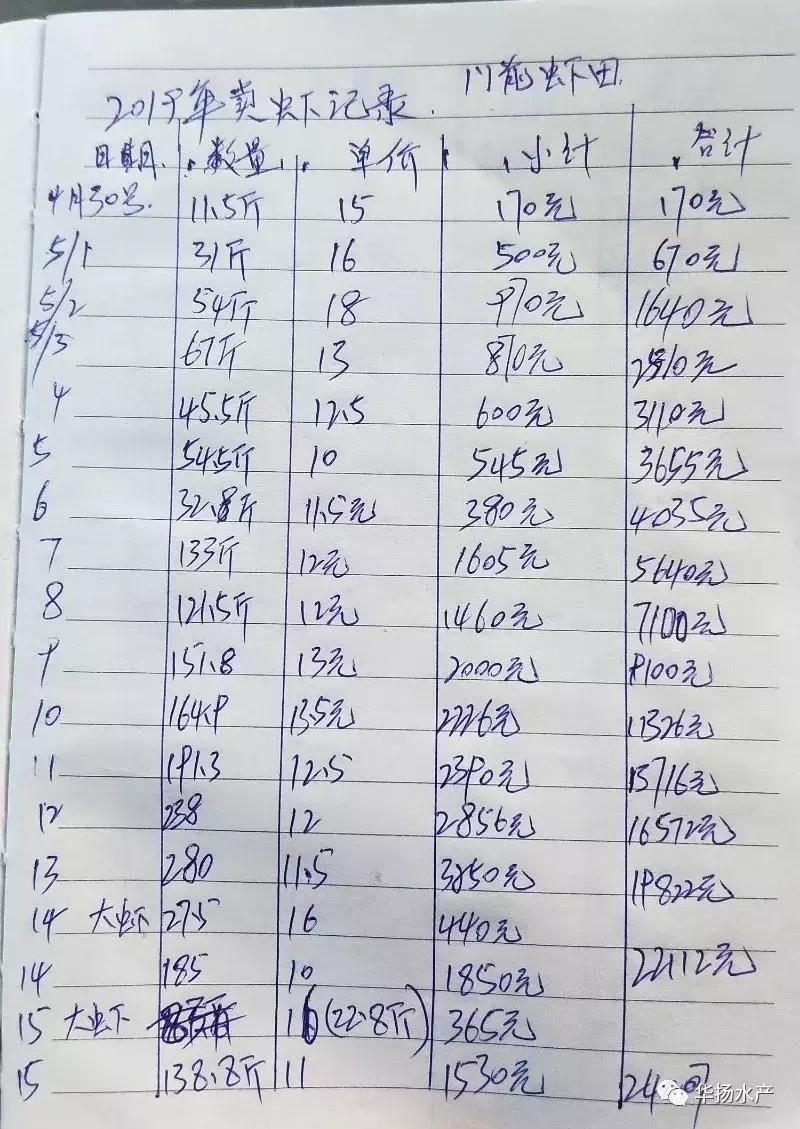 门前虾田.
2019年卖虾记录.
日期. 数量. 单价 小计 合计
4月30号. 11.5斤 15 170元 170元
5/1 31斤 16 500元 670元
5/2 54斤 18 970元 1640元
5/3 67斤 13 870元 2510元
4 45.5斤 12.5 600元 3110元
5 54.5斤 10 545元 3655元
6 32.8斤 11.5元 380元 4035元
7 133斤 12元 1605元 5640元
8 121.5斤 12元 1460元 7100元
9 151.8 13元 2000元 9100元
10 164.9 13.5元 2226元 11326元
11 191.3 12.5 2390元 13716元
12 238 12 2856元 16572元
13 280 11.5 3250元 19822元
14 大虾 27.5 16 440元
14 185 10 1850元 22112元
15 大虾 16 (22.8斤) 365元
15 138.8斤 11 1530元
华扬水产